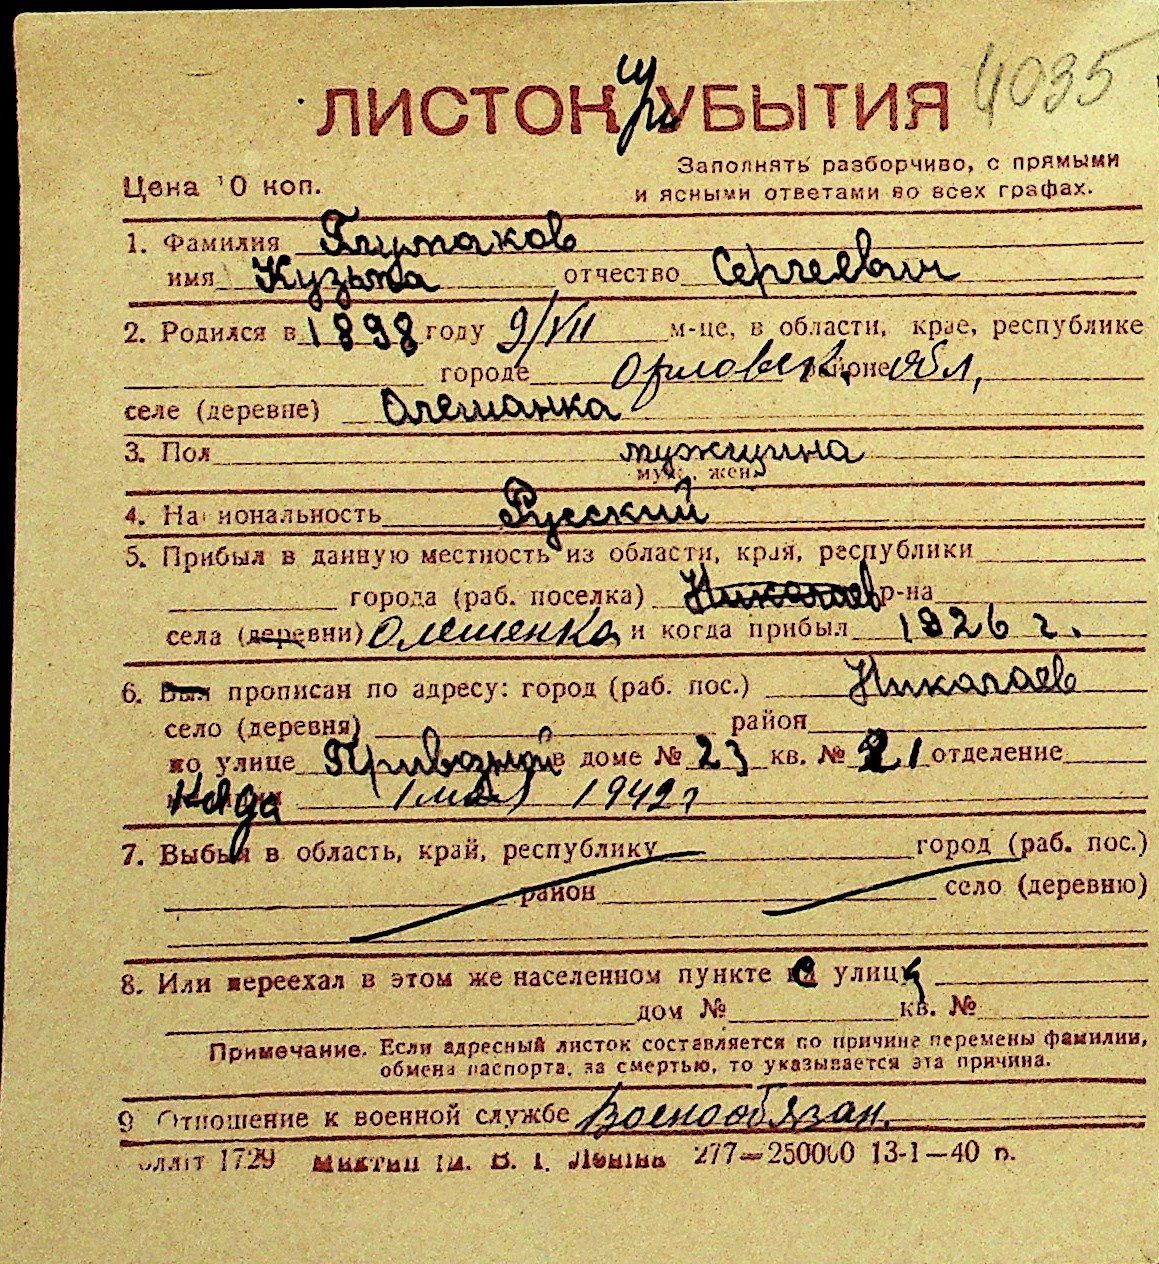 4035
ЛИСТОК УБЫТИЯ
Цена 10 коп.
Заполнять разборчиво, с прямыми
и ясными ответами во всех графах.
1. Фамилия Глумаков
имя Кузьма отчество Сергеевич
2. Родился в 1898 году 9/VII м-це, в области, крае, республике
городе Орловск. районе обл,
селе (деревне) Олешанка
3. Пол мужчина
муж. жен.
4. Национальность Русский
5. Прибыл в данную местность из области, края, республики
города (раб. поселка) Николаев р-на
села (деревни) Олешенка и когда прибыл 1926 г.
6. Был прописан по адресу: город (раб. пос.) Николаев
село (деревня) район
по улице Привозной в доме № 23 кв. № 21 отделение
когда 1 мая 1942 г
7. Выбыл в область, край, республику город (раб. пос.)
район село (деревню)
8. Или переехал в этом же населенном пункте на улицу
дом № кв. №
Примечание. Если адресный листок составляется по причине перемены фамилии,
обмена паспорта, за смертью, то указывается эта причина.
9 Отношение к военной службе Военообязан.
1729 ім. В. І. Леніна 277—250000 13-1—40 р.